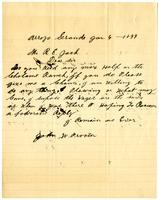 Arroyo Grande Jan 6 - 1899
Mr R. E. Jack
Dear Sir
Do you Need any more Help on the
Cholame Ranch, If you do Please
give me a Chance, I am willing to
do any thing Plowing or what may
Come, I suppose the wages are the same
as when I was There. Hoping To Receive
a favorable Reply
I Remain as Ever
John W. Proctor